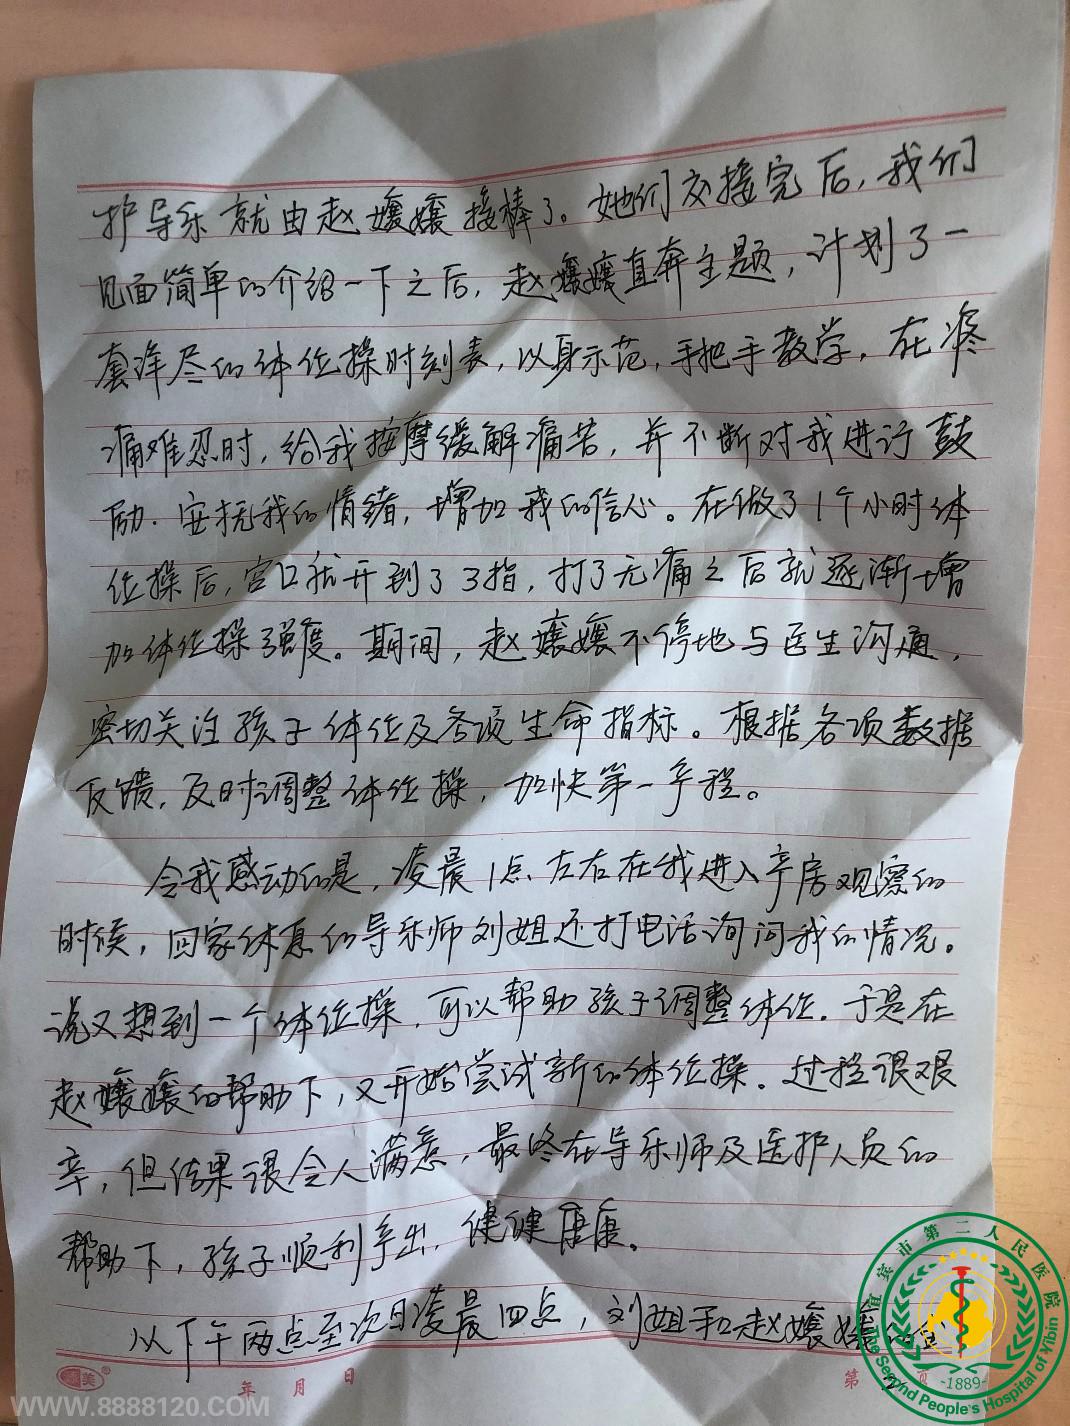 护导乐就由赵嬢嬢接棒了。她们交接完后，我们
见面简单的介绍一下之后，赵嬢嬢直奔主题，计划了一
套详尽的体位操时刻表，以身示范，手把手教学，在疼
痛难忍时，给我按摩缓解痛苦，并不断对我进行鼓
励．安抚我的情绪，增加我的信心。在做了1个小时体
位操后，宫口就开到了3指，打了无痛之后就逐渐增
加体位操强度。期间，赵嬢嬢不停地与医生沟通，
密切关注孩子体位及各项生命指标。根据各项数据
反馈，及时调整体位操，加快第一产程。
令我感动的是，凌晨1点左右在我进入产房观察的
时候，回家休息的导乐师刘姐还打电话询问我的情况。
说又想到一个体位操，可以帮助孩子调整体位．于是在
赵嬢嬢的帮助下，又开始尝试新的体位操．过程很艰
辛，但结果很令人满意，最终在导乐师及医护人员的
帮助下，孩子顺利产出，健健康康。
从下午两点至次日凌晨四点，刘姐和赵嬢嬢
美®
年 月 日
第 页
WWW.8888120.COM
宜宾市第二人民医院
The Second People's Hospital of Yibin
-1889-